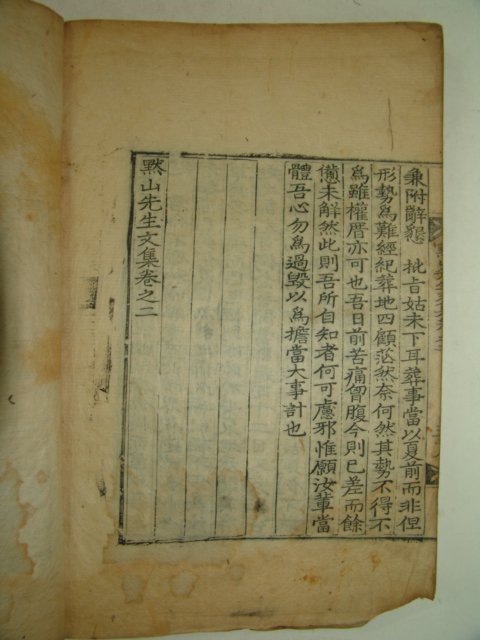 兼附辭懇 批旨姑未下耳葬事當以夏前而非但
形勢爲難經紀葬地四顧茫然奈何然其勢不得不
爲雖權厝亦可也吾日前苦痛胷腹今則已差而餘
憊未解然此則吾所自知者何可慮邪惟願汝輩當
體吾心勿爲過毁以爲擔當大事計也
默山先生文集卷之二